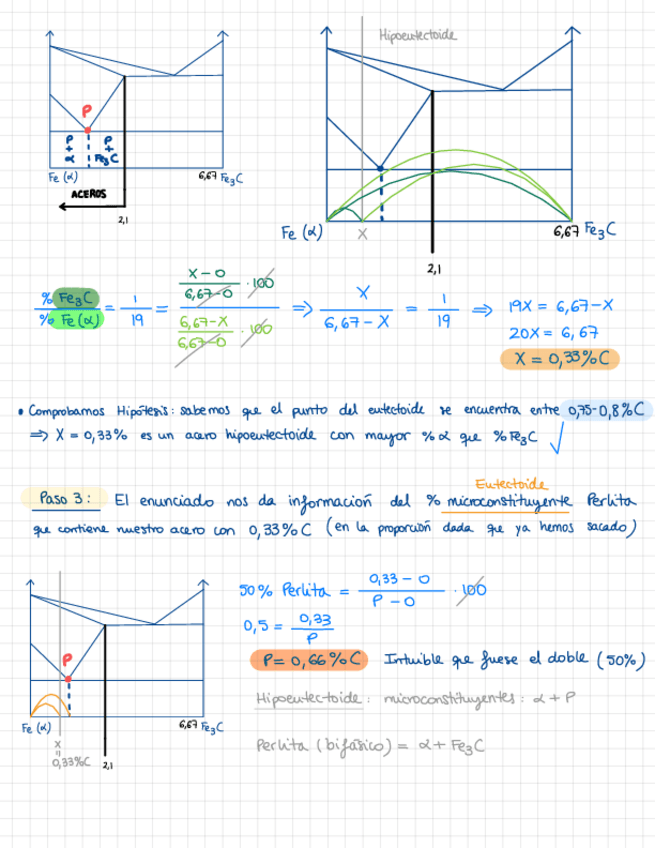 Hipoeutectoide
P
P + α
P + Fe₃C
Fe (α)
6,67 Fe₃C
ACEROS
2,1
Fe (α)
X
6,67 Fe₃C
2,1
% Fe₃C / % Fe(α) = 1/19 = (X-0 / 6,67-0 · 100) / (6,67-X / 6,67-0 · 100) ⇒ X / 6,67-X = 1/19 ⇒ 19X = 6,67-X
20X = 6,67
X = 0,33%C
• Comprobamos Hipótesis: sabemos que el punto del eutectoide se encuentra entre 0,75-0,8%C
⇒ X = 0,33% es un acero hipoeutectoide con mayor %α que %Fe₃C ✓
Eutectoide
Paso 3: El enunciado nos da información del % microconstituyente Perlita
que contiene nuestro acero con 0,33%C (en la proporción dada que ya hemos sacado)
50% Perlita = 0,33-0 / P-0 · 100
0,5 = 0,33 / P
P = 0,66%C Intuible que fuese el doble (50%)
Hipoeutectoide: microconstituyentes: α + P
Perlita (bifásico) = α + Fe₃C
P
Fe (α)
6,67 Fe₃C
X
=
0,33%C
2,1